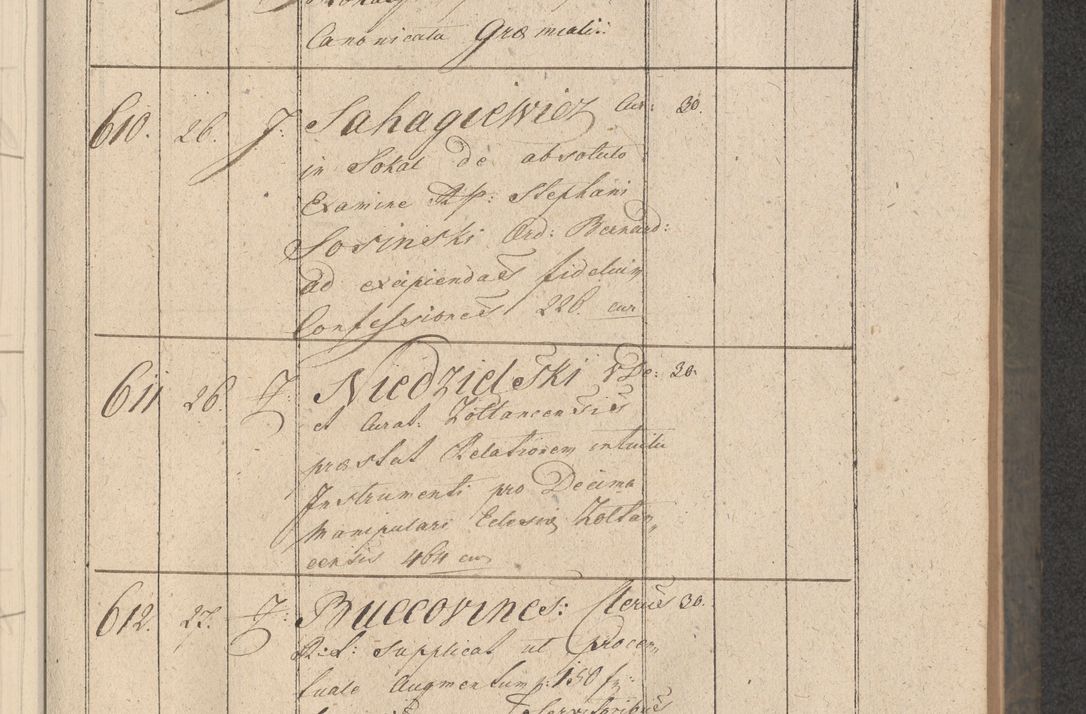 Canonicatu Gremiali
610. 26. J: Sahagiewicz Cur: 30.
in Sokal de absoluto
Examine Rp: Stephani
Sosinski Ord: Bernard:
ad excipiendas fidelium
Confessiones 226. cur
611 26. J: Niedzielski VDe: 30.
et Curat: Zoltancensis
praestat Relationem intuitu
Instrumenti pro Decima
Manipulari Eclesiae Zoltan„
censis 464 cur
612. 27. J: Buccovines: Clerus 30.
R: L: supplicat ut procen„
tuale Augmentum p: 150 fr:
Servitoribus